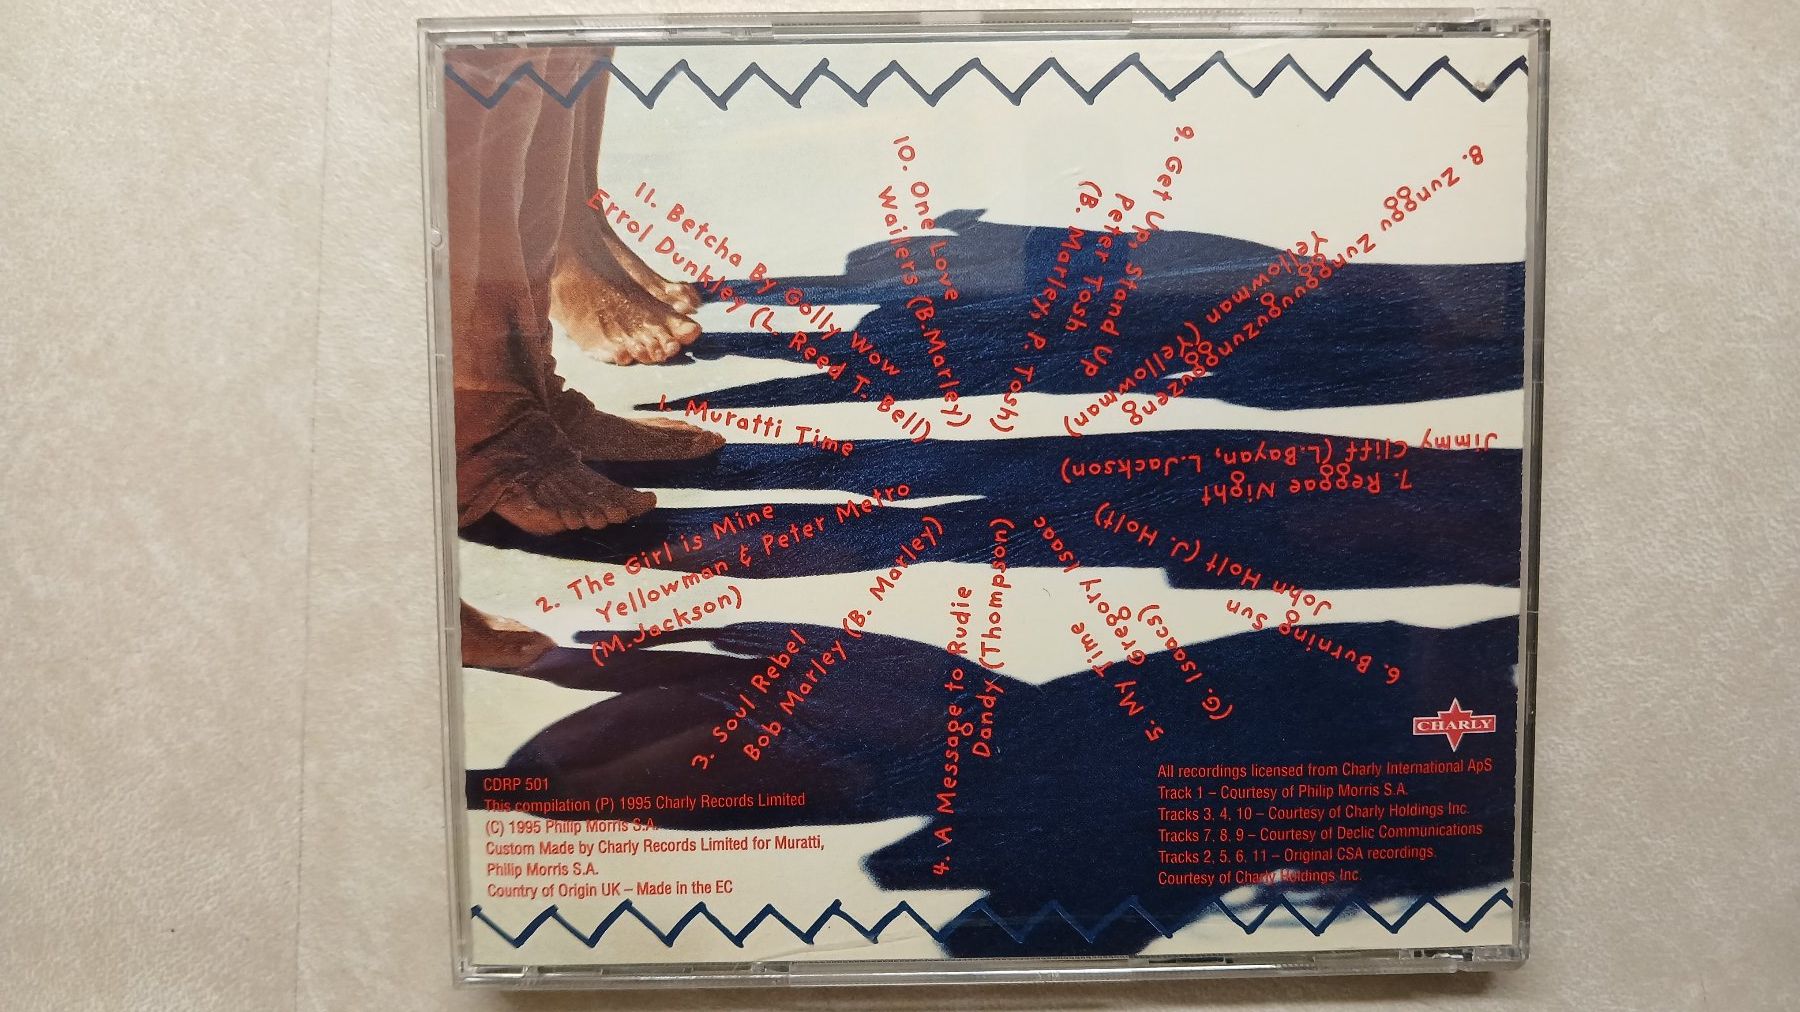 1. Muratti Time
2. The Girl is Mine
Yellowman & Peter Metro
(M.Jackson)
3. Soul Rebel
Bob Marley (B. Marley)
4. A Message to Rudie
Dandy (Thompson)
5. My Time
Gregory Isaac
(G. Isaacs)
6. Burning Sun
John Holt (J. Holt)
7. Reggae Night
Jimmy Cliff (L.Bayan, L.Jackson)
8. Zungguv Zungguguzungguguzeng
Yellowman (Yellowman)
9. Get Up, Stand Up
Peter Tosh
(B. Marley, P. Tosh)
10. One Love
Wailers (B.Marley)
11. Betcha By Golly Wow
Errol Dunkley (L. Reed T. Bell)
CDRP 501
This compilation (P) 1995 Charly Records Limited
(C) 1995 Philip Morris S.A.
Custom Made by Charly Records Limited for Muratti,
Philip Morris S.A.
Country of Origin UK – Made in the EC
CHARLY
All recordings licensed from Charly International ApS
Track 1 – Courtesy of Philip Morris S.A.
Tracks 3, 4, 10 – Courtesy of Charly Holdings Inc.
Tracks 7, 8, 9 – Courtesy of Declic Communications
Tracks 2, 5, 6, 11 – Original CSA recordings.
Courtesy of Charly Holdings Inc.